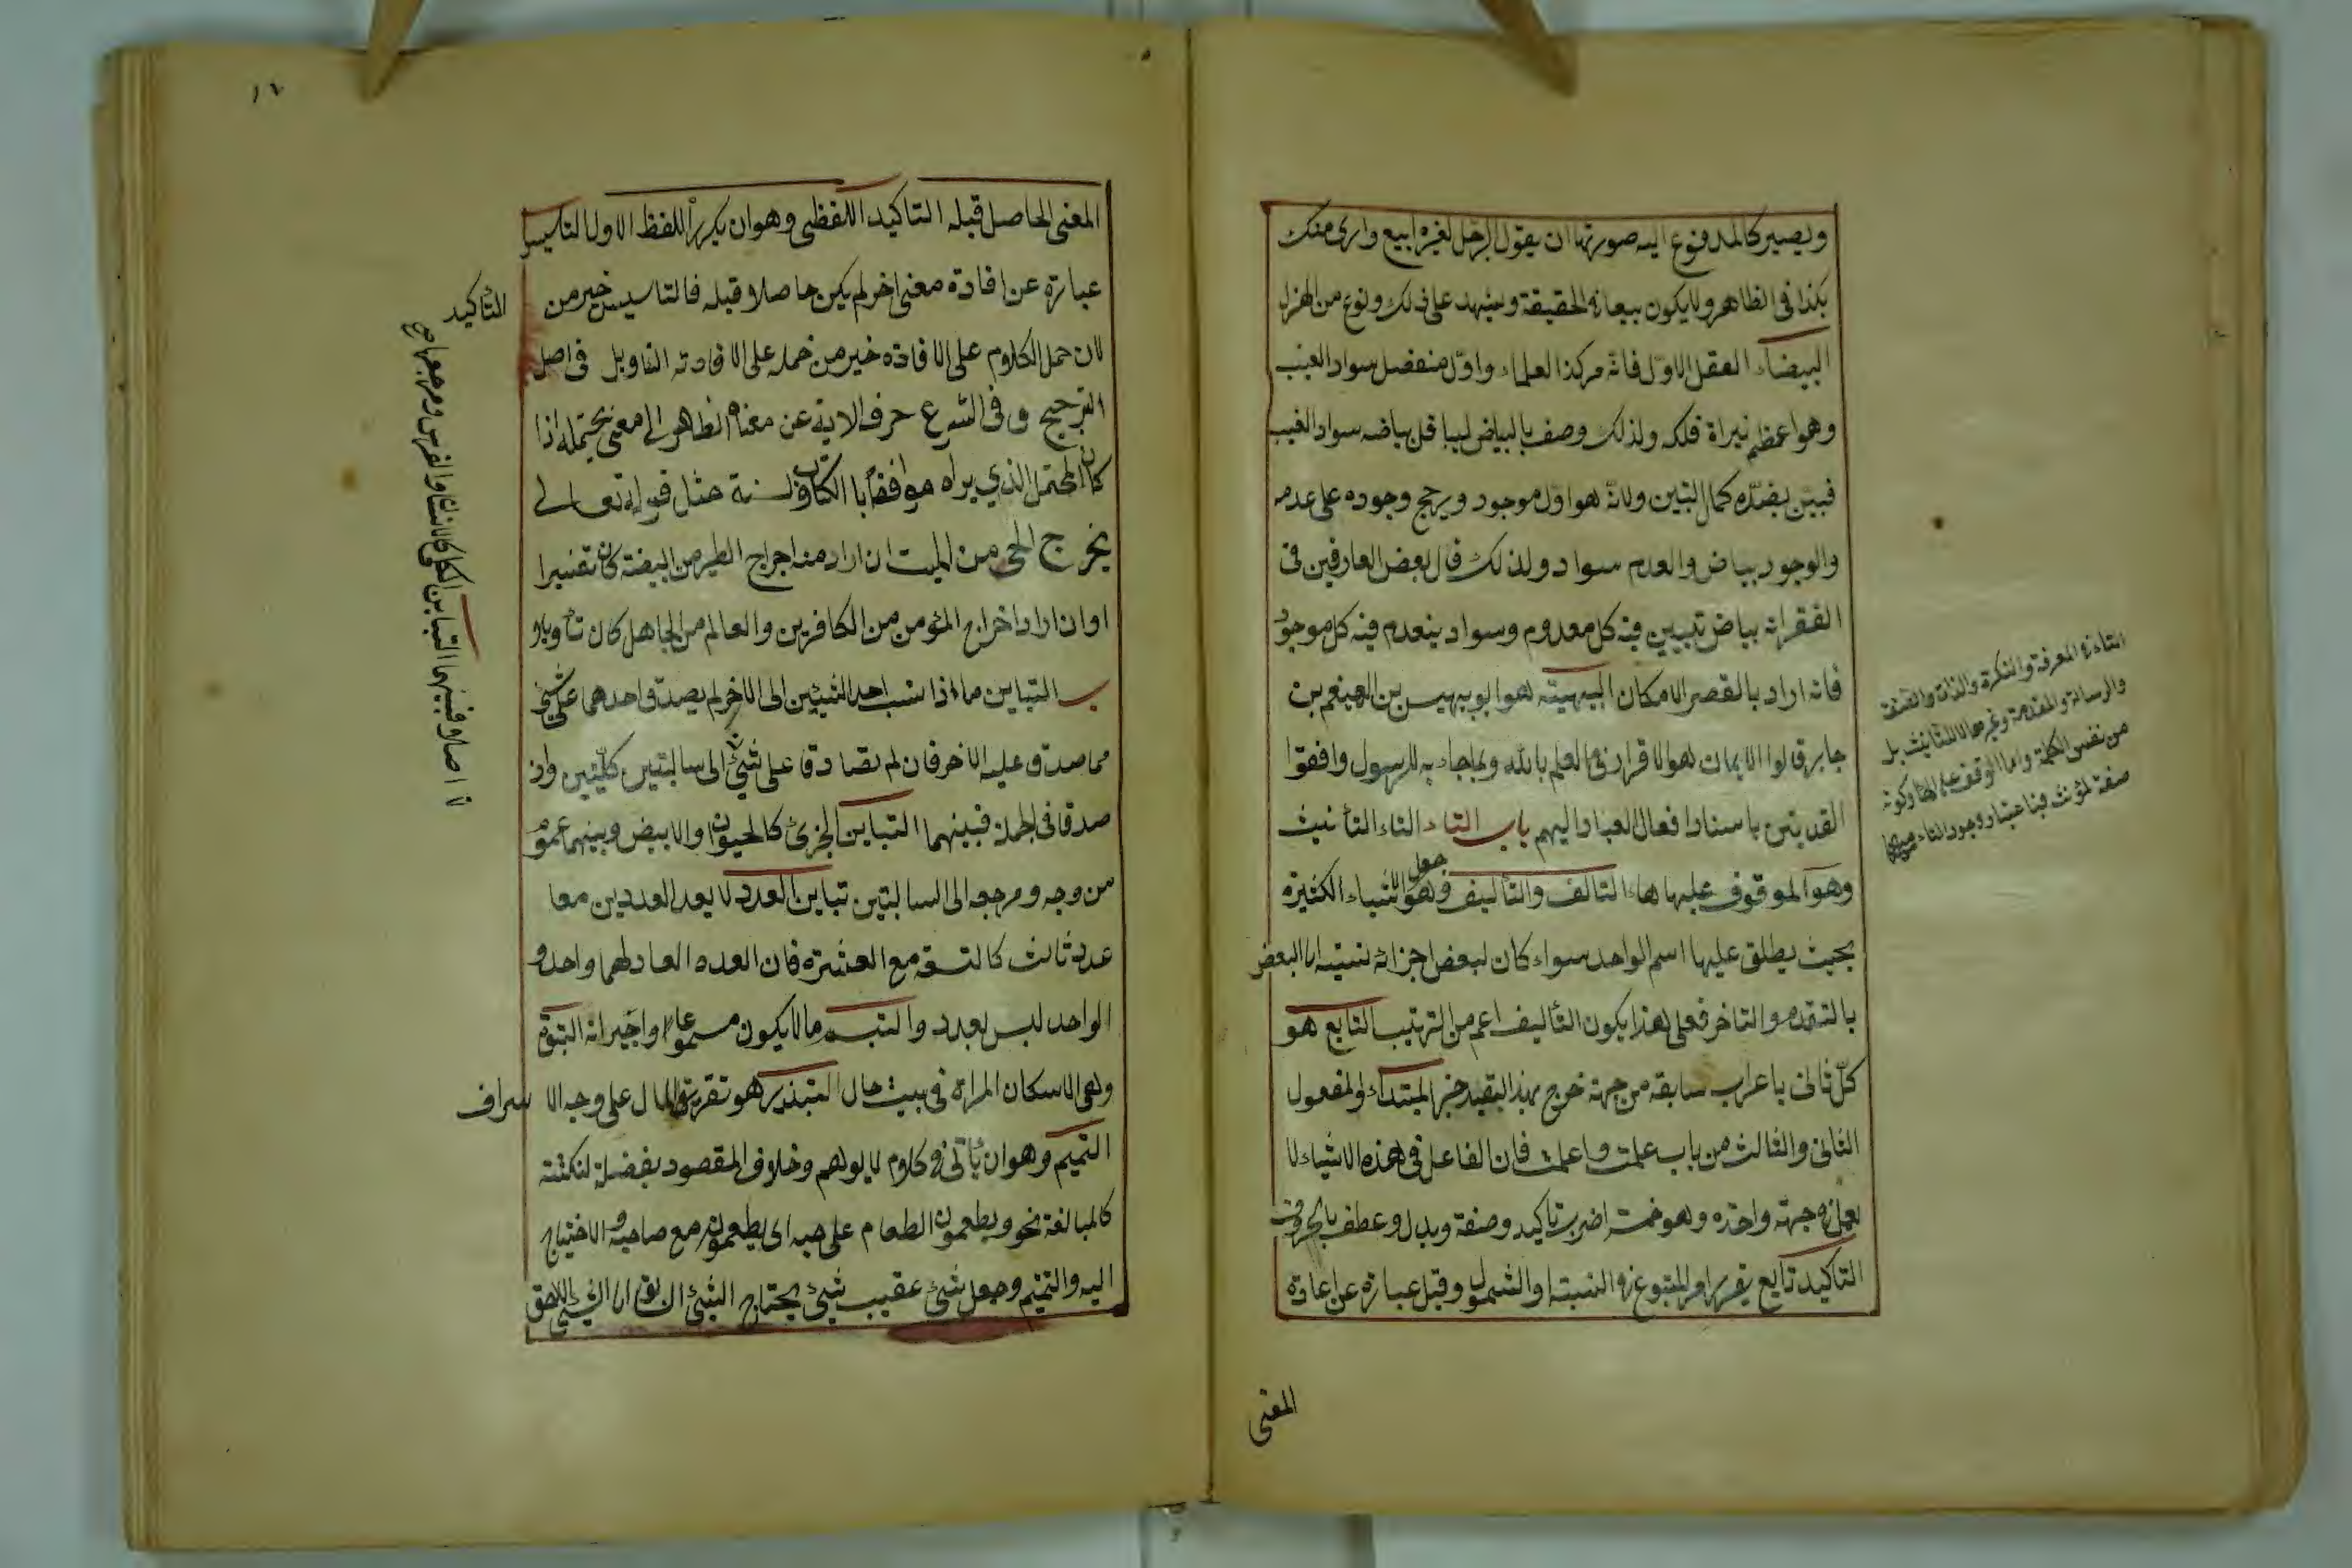 ويصير كالمدفوع اليه صورتها ان يقول الرجل لغيره ابيع داري منك
بكذا في الظاهر ولا يكون بيعا في الحقيقة ويشهد على ذلك ونوع من الهزل
البيضاء العقل الاول فانه مركز العلماء واول منفصل سواد الغيب
وهو اعظم نيراة فلكه ولذلك وصف بالبياض ليباقل بياضه سواد الغيب
فيبين بضده كمال التبين ولانه هو اول موجود ويرجح وجوده على عدمه
والوجود بياض والعدم سواد ولذلك قال بعض العارفين في
الفقر انه بياض تبيين فيه كل معدوم وسواد ينعدم فيه كل موجود
فانه اراد بالفقر الامكان البيهيته هو ابو بهيس بن الهيثم بن
جابر قالوا الايمان هو الاقرار في العلم بالله وبما جاء به الرسول وافقوا
القديتين باسناد افعال العباد اليهم باب التاء التاء التأنيث
وهو الموقوف عليها هاء التالف والتأليف وهو جعل الاشياء الكثيرة
بحيث يطلق عليها اسم الواحد سواء كان لبعض اجزائه نسبته الى البعض
بالتقدم والتاخر فعلى هذا يكون التأليف اعم من الترتيب التابع هو
كل ثانى باعراب سابقه من جهة خرج بهذا القيد خبر المبتداء والمفعول
الثانى والثالث من باب علمت واعلمت فان الفاعل في هذه الاشياء لا
يعمل من جهة واحدة وهو خمسة اضرب تاكيد وصفة وبدل وعطف بالحروف
التاكيد تابع يقرر امر المتبوع في النسبة او الشمول وقيل عبارة عن اعادة
المعنى
التاء في المعرفة والنكرة والذات والصفة
والرسالة والمقدمة وغيرها لا للتانيث بل
من نفس الكلمة واما الوقف عليها وكونه
صفة لمؤنث فباعتبار وجود التاء
١٦
المعنى الحاصل قبله التاكيد اللفظى وهو ان يكرر اللفظ الاول التاسيس
عبارة عن افادة معنى اخر لم يكن حاصلا قبله فالتاسيس خير من
التأكيد
لان حمل الكلام على الافادة خير من حمله على الافادته التاويل في اصل
الترجيح وفي الشرع حرف الاية عن معناه الظاهر الى معنى يحتمله اذا
كان المحتمل الذي يراه موافقا بالكتاب والسنة مثل قوله تعالى
يخرج الحى من الميت ان اراد منه اخراج الطير من البيضة كان تفسيرا
او ان اراد اخراج المؤمن من الكافرين والعالم من الجاهل كان تأويلا
التباين ما اذا نسب احد الشيئين الى الاخر لم يصدق احدهما على شئ
مما صدق عليه الاخر فان لم يتصادقا على شئ الى سالبتين كليتين وان
صدقا فى الجملة فبينهما التباين الجزئ كالحيوان والابيض وبينهما عموم
من وجه ومرجعه الى السالبتين تباين العدد لا يعد العددين معا
عدد ثالث كالتسعة مع العشرة فان العدد العاد لهما واحد و
الواحد ليس بعدد والتبسم ما لا يكون مسموعا او جيرانه التبوة
وهى الاسكان المراة في بيت حال التبذير هو تفريق المال على وجه الاسراف
التميم وهو ان يأتى في كلام لا يوهم وخلاف المقصود بفضلة لنكتة
كالمبالغة نحو ويطعمون الطعام على حبه اى يطعمون مع صاحبه والاحتياج
اليه والتتميم وجعل شئ عقيب شئ يحتاج الشئ السابق الى الشئ اللاحق
اصلا فبينهما التباين الكلى كالانسان والفرس ومرجعها